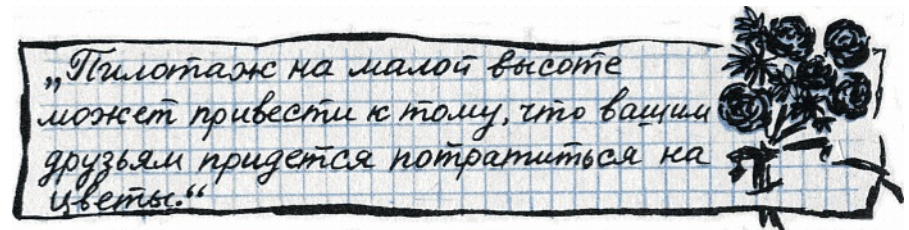 „Пилотаж на малой высоте
может привести к тому, что вашим
друзьям придется потратиться на
цветы.“